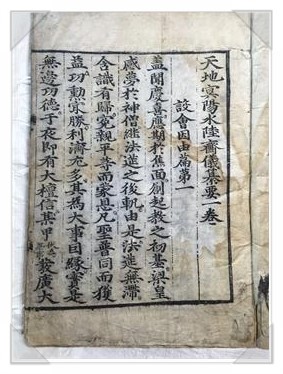 天地冥陽水陸齋儀纂要一卷
設會因由篇第一
盖聞慶喜應期於焦面創起教之初基梁皇
感夢於神僧継法筵之後軌由是法筵無滯
含識有歸寃親平等而蒙恩凡聖普同而獲
益功勲冣勝利濟尤多其為大事因縁實是
無邊功德于夜即有大檀信某甲發廣大